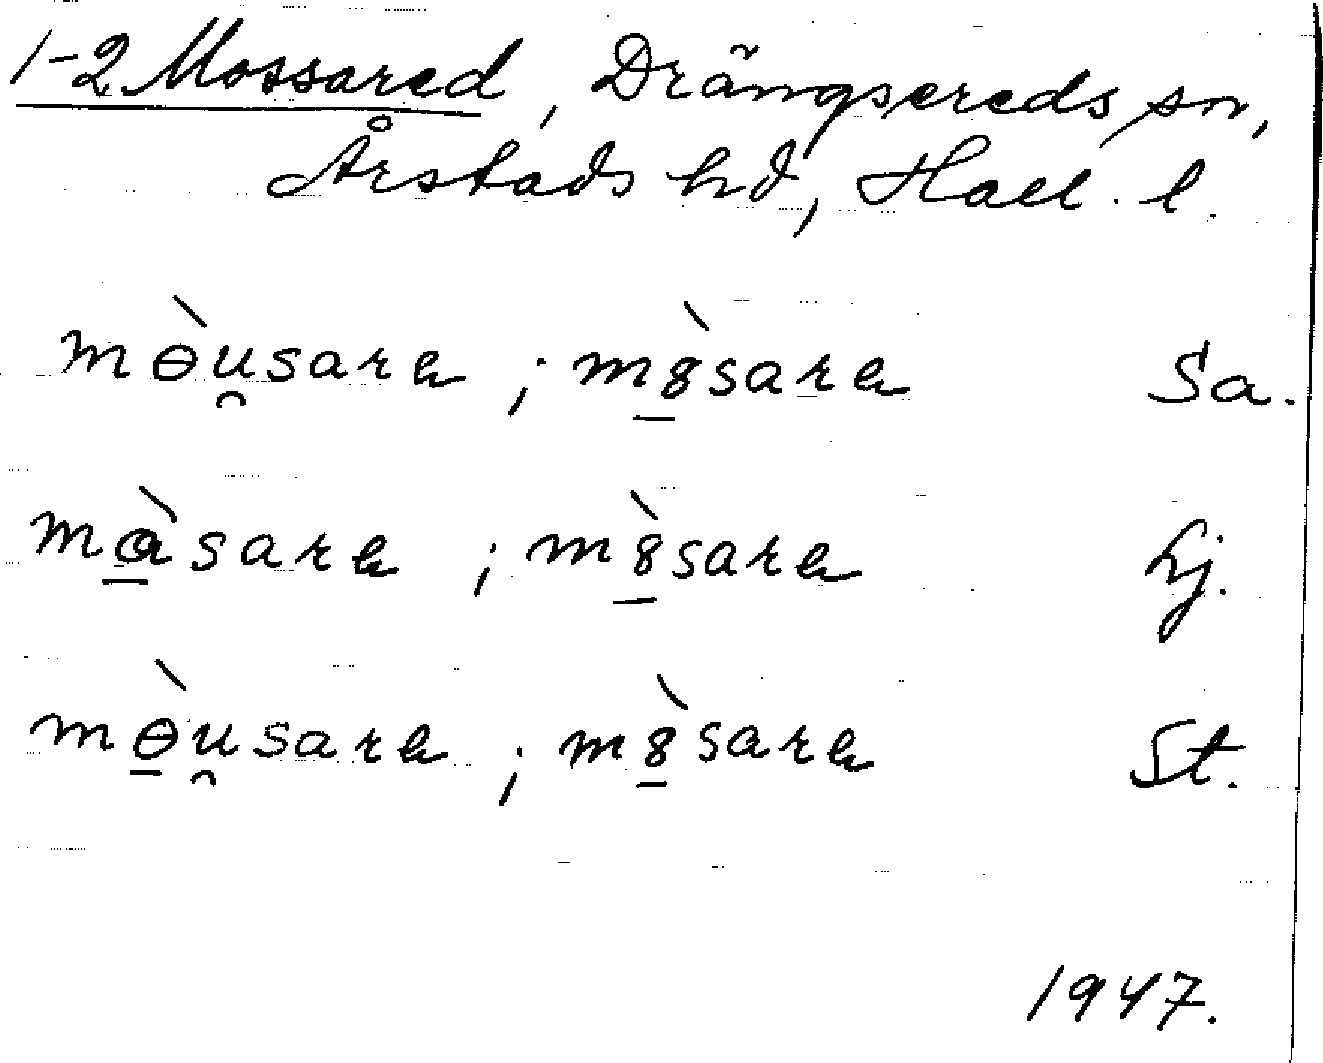 1-2 Mossared, Drängsereds sn,
Årstads hd, Hall. l.
mɵ̀u̯sarɐ ; m8̠̀sarɐ Sa.
mɑ̠̀sarɐ ; m8̠̀sarɐ Lj.
mɵ̠̀u̯sarɐ ; m8̠̀sarɐ St.
1947.